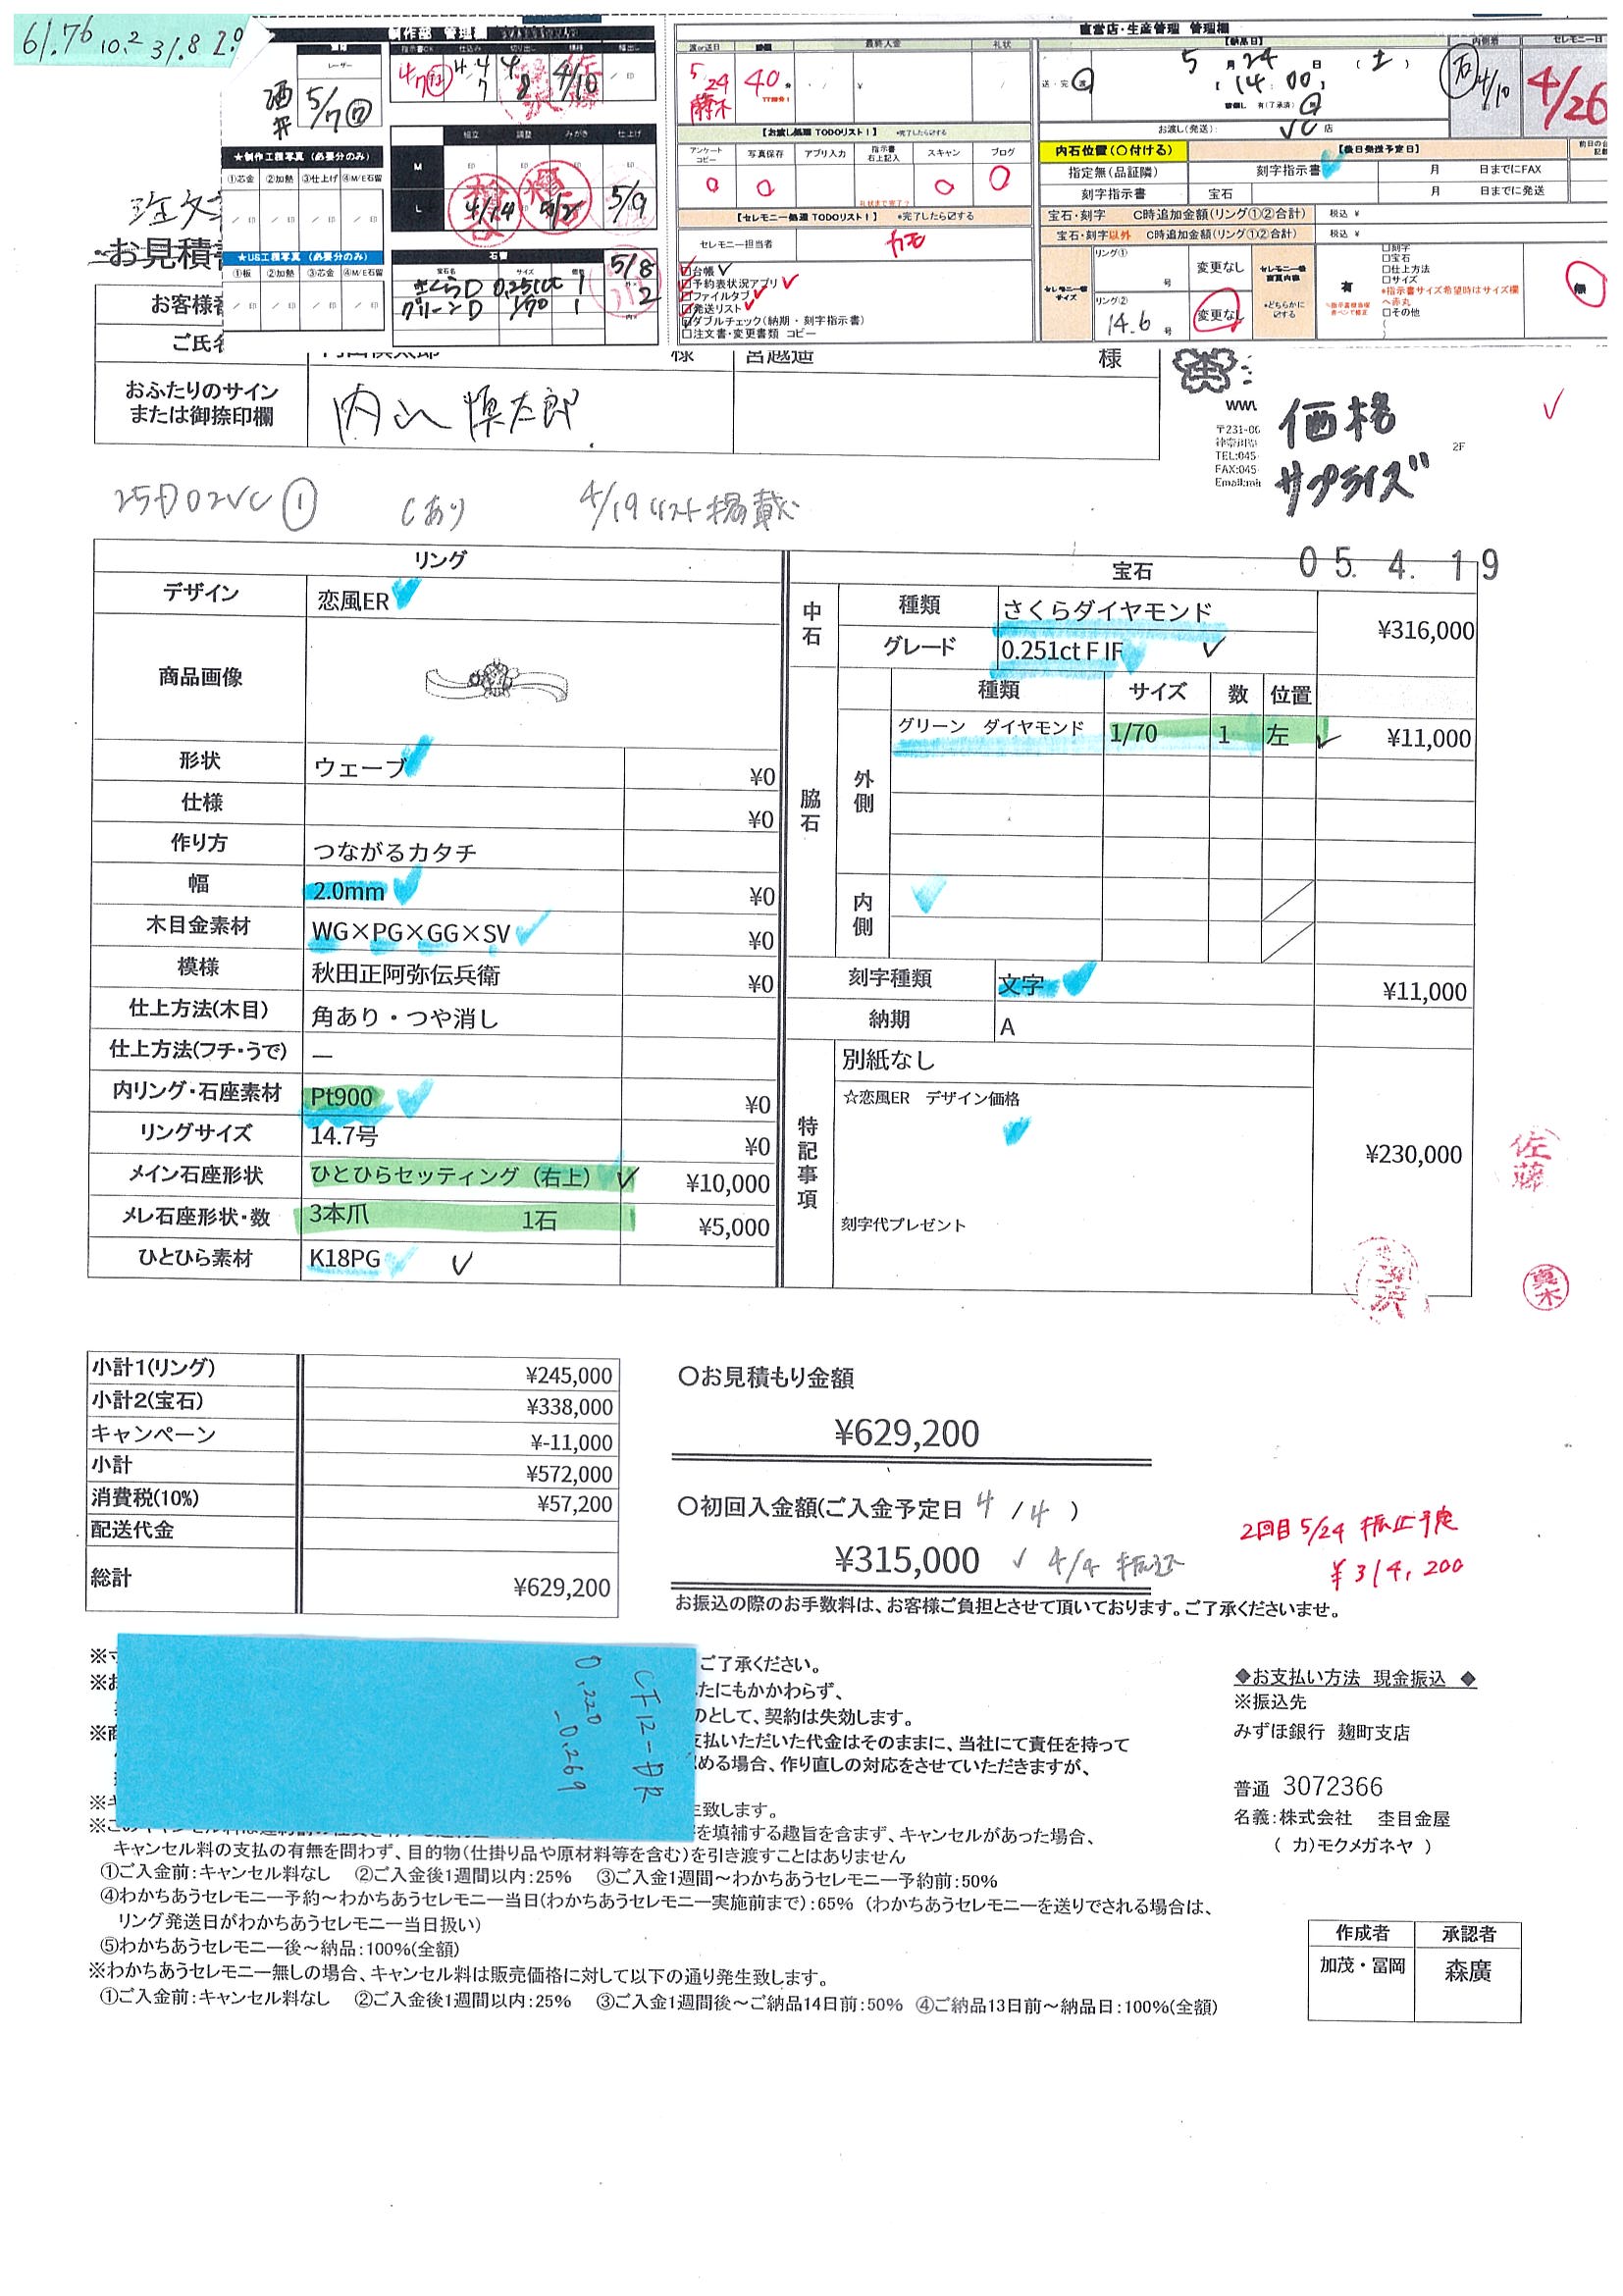 61.76 10.2 31.8 2.0
制作部 管理欄
直営店・生産管理 管理欄
レーザー
酒井
5/7
指示書OK 仕込み 切り出し 模様 幅出し
4/7 4/10
組立 調整 みがき 仕上げ
M
L 4/14 5/2 5/9
★制作工程写真 (必要分のみ)
①芯金 ②加熱 ③仕上げ ④M/E石留
★US工程写真 (必要分のみ)
①板 ②加熱 ③芯金 ④M/E石留
石留
宝石名 サイズ 個数
さくらD 0.251ct 1
グリーンD 1/70 1
5/8
2
渡or送日 最終入金 礼状
5/24 40分
藤木
【お渡し処理 TODOリスト！】 *完了したら☑する
アンケートコピー 写真保存 アプリ入力 指示書右上記入 スキャン ブログ
【セレモニー処理 TODOリスト！】 *完了したら☑する
セレモニー担当者
台帳
予約表状況アプリ
ファイルタブ
発送リスト
ダブルチェック(納期・刻字指示書)
□注文書・変更書類 コピー
【納品日】
5月24日 (土)
14:00
お渡し(発送): VC店
内側着
4/10
セレモニー日
4/26
内石位置(○付ける) 【後日発送予定日】
指定無(品証隣) 刻字指示書 月 日までにFAX
刻字指示書 宝石 月 日までに発送
宝石・刻字 C時追加金額(リング①②合計) 税込 ¥
宝石・刻字以外 C時追加金額(リング①②合計) 税込 ¥
リング① 号 変更なし
リング② 14.6 号 変更なし
有
□刻字
□宝石
□仕上方法
□サイズ
*指示書サイズ希望時はサイズ欄へ赤丸
□その他
無
注文
お見積書
お客様番
ご氏名
様 宮越遥 様
おふたりのサイン
または御捺印欄
内山 慎太郎
〒231-00
TEL:045
FAX:045
2F
価格
サプライズ
①
Cあり
4/19リスト掲載
05. 4. 19
リング
デザイン 恋風ER
商品画像
形状 ウェーブ ¥0
仕様 ¥0
作り方 つながるカタチ
幅 2.0mm ¥0
木目金素材 WG×PG×GG×SV ¥0
模様 秋田正阿弥伝兵衛 ¥0
仕上方法(木目) 角あり・つや消し
仕上方法(フチ・うで) ―
内リング・石座素材 Pt900 ¥0
リングサイズ 14.7号 ¥0
メイン石座形状 ひとひらセッティング（右上） ¥10,000
メレ石座形状・数 3本爪 1石 ¥5,000
ひとひら素材 K18PG
宝石
中石 種類 さくらダイヤモンド ¥316,000
グレード 0.251ct F IF
脇石 種類 サイズ 数 位置
外側 グリーン ダイヤモンド 1/70 1 左 ¥11,000
内側
刻字種類 文字 ¥11,000
納期 A
特記事項 別紙なし
☆恋風ER デザイン価格 ¥230,000
刻字代プレゼント
佐藤
真木
小計1(リング) ¥245,000
小計2(宝石) ¥338,000
キャンペーン ¥-11,000
小計 ¥572,000
消費税(10%) ¥57,200
配送代金
総計 ¥629,200
○お見積もり金額
¥629,200
○初回入金額(ご入金予定日 4 / 4 )
¥315,000 4/4 振込
お振込の際のお手数料は、お客様ご負担とさせて頂いております。ご了承くださいませ。
2回目 5/24 振込予定
¥314,200
0.220-0.269
ご了承ください。
たにもかかわらず、
のとして、契約は失効します。
支払いただいた代金はそのままに、当社にて責任を持って
める場合、作り直しの対応をさせていただきますが、
生致します。
を填補する趣旨を含まず、キャンセルがあった場合、
キャンセル料の支払の有無を問わず、目的物(仕掛り品や原材料等を含む)を引き渡すことはありません
①ご入金前:キャンセル料なし ②ご入金後1週間以内:25% ③ご入金1週間～わかちあうセレモニー予約前:50%
④わかちあうセレモニー予約～わかちあうセレモニー当日(わかちあうセレモニー実施前まで):65% (わかちあうセレモニーを送りでされる場合は、
リング発送日がわかちあうセレモニー当日扱い)
⑤わかちあうセレモニー後～納品:100%(全額)
※わかちあうセレモニー無しの場合、キャンセル料は販売価格に対して以下の通り発生致します。
①ご入金前:キャンセル料なし ②ご入金後1週間以内:25% ③ご入金1週間後～ご納品14日前:50% ④ご納品13日前～納品日:100%(全額)
◆お支払い方法 現金振込 ◆
※振込先
みずほ銀行 麹町支店
普通 3072366
名義:株式会社 杢目金屋
( カ)モクメガネヤ )
作成者 承認者
加茂・冨岡 森廣